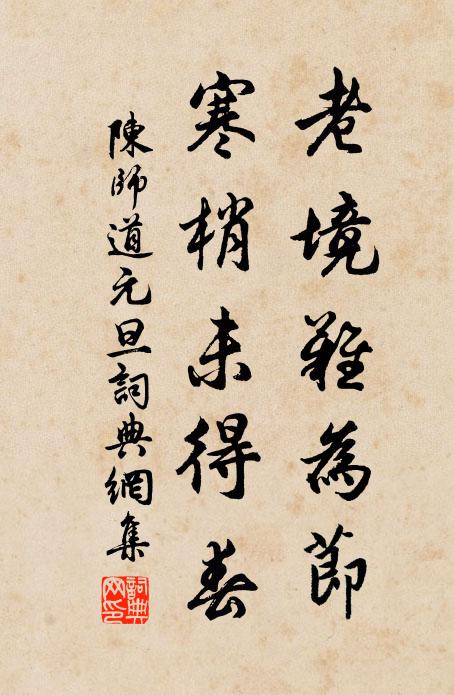 老境難為節
寒梢未得春
陳師道元旦詞典網集
詞典网印